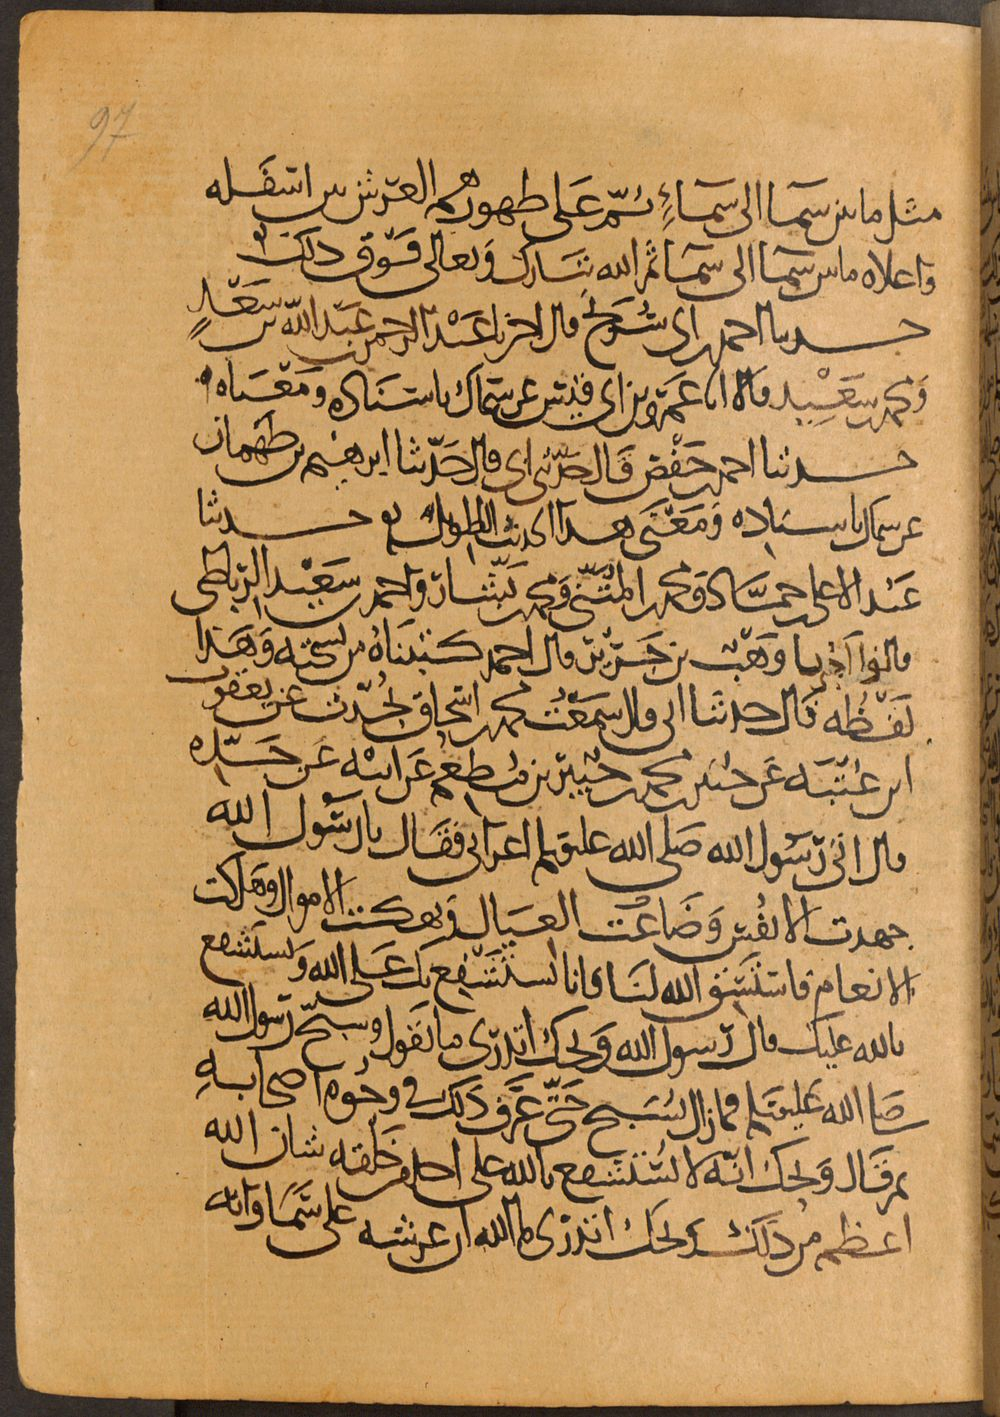 97
مثل ما بين سما الى سماءٍ ثمّ على ظهورهم العرش بين اسفله
واعلاه ما بين سما الى سما ثم الله تبارك وتعالى فوق ذلك
حدثنا احمد بن ابى سُريج قال اخبرنا عبد الرحمن بن عبد الله بن سعدٍ
ومحمد بن سعيد قالا انا عمرو بن ابى قيس عن سماك باسناده ومعناه
حدثنا احمد بن حفص قال حدّثنى ابى قال حدّثنا ابرهيم بن طهمان
عن سماك باسناده ومعنى هذا الحديث الطويل حدثنا
عبد الاعلى بن حماد ومحمد بن المثنى ومحمد بن بشار واحمد بن سعيد الرباطى
قالوا اخبرنا وهب بن جرير قال احمد كتبناه من نسخته وهذا
لفظه قال حدثنا ابى قال سمعت محمد بن اسحاق يحدّث عن يعقوب
ابن عتبه عن جبير بن محمد بن جبير بن مطعم عن ابيه عن جدّه
قال اتى رسول الله صلى الله عليه وسلم اعرابى فقال يا رسول الله
جهدت الانفس وضاعت العيال ونهكت الاموال وهلكت
الانعام فاستسق الله لنا فانا نستشفع بك على الله ونستشفع
بالله عليك قال رسول الله ويحك اتدرى ما تقول وسبّح رسول الله
صلى الله عليه وسلم فما زال يسبح حتّى عرف ذلك فى وجوه اصحابه
ثم قال ويحك انّه لا يستشفع بالله على احد من خلقه شان الله
اعظم من ذلك ويحك اتدرى ما الله ان عرشه على سماواته